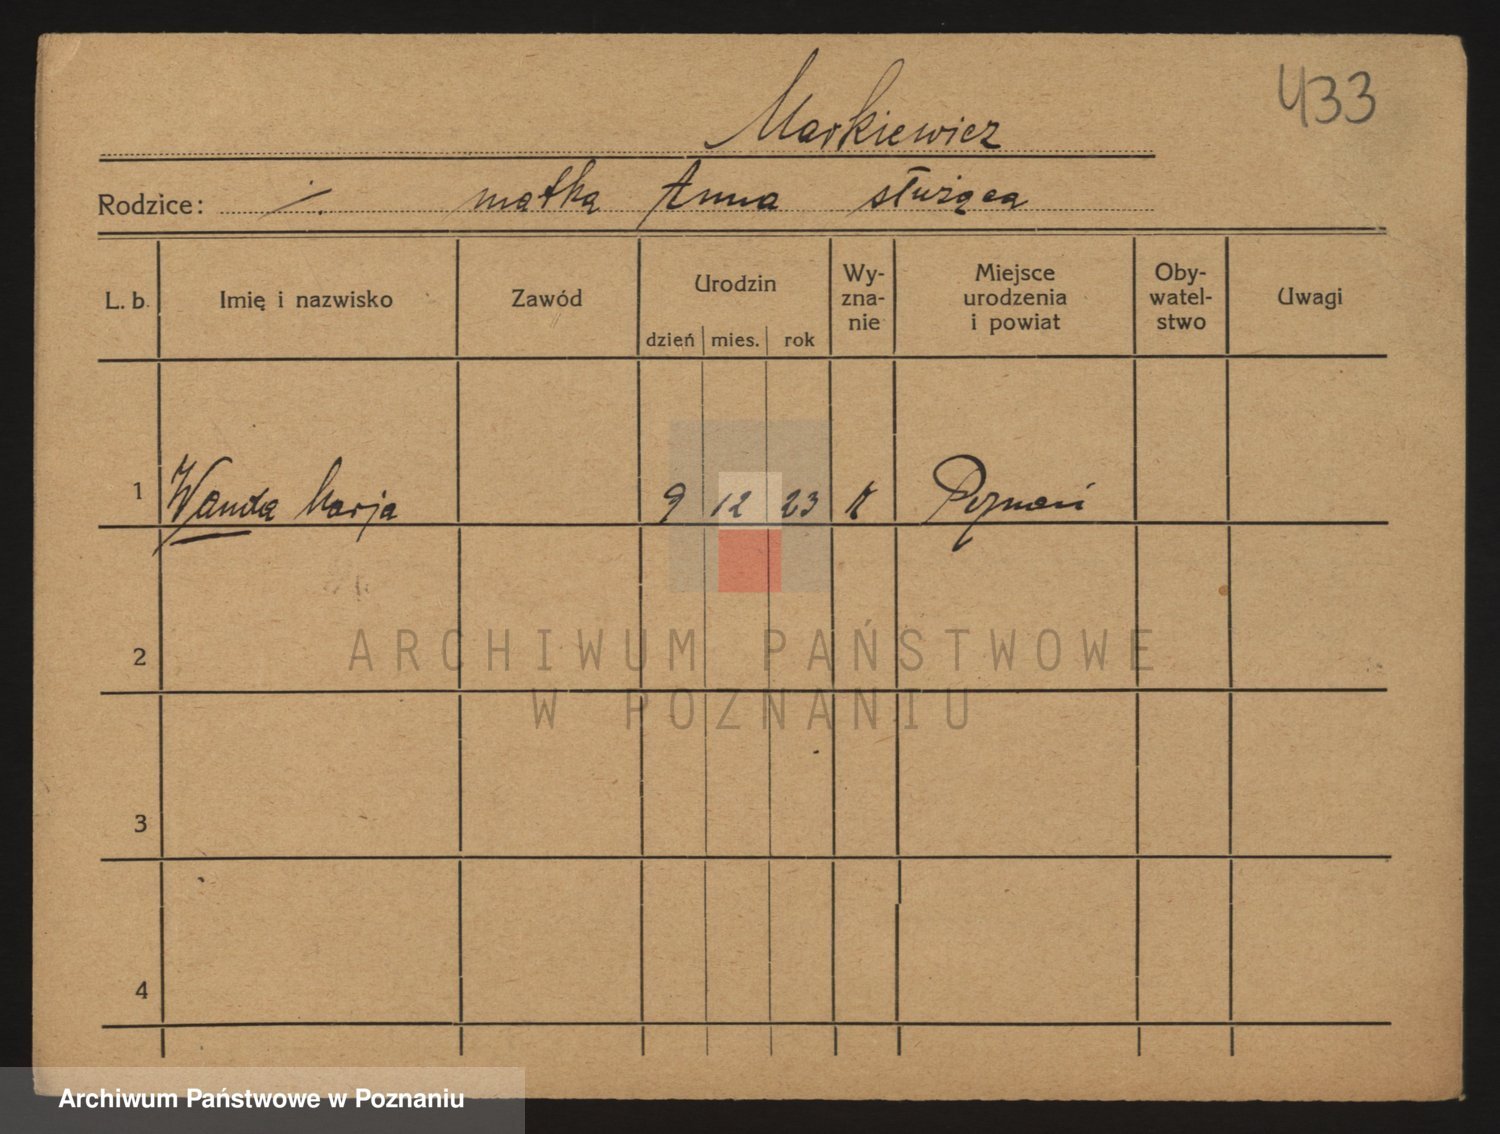 433
Markiewicz
Rodzice: ./. matka Anna służąca
L. b. Imię i nazwisko Zawód Urodzin dzień mies. rok Wy-zna-nie Miejsce urodzenia i powiat Oby-watel-stwo Uwagi
1 Wanda Marja 9 12 23 K Poznań
2
ARCHIWUM PAŃSTWOWE
W POZNANIU
3
4
Archiwum Państwowe w Poznaniu